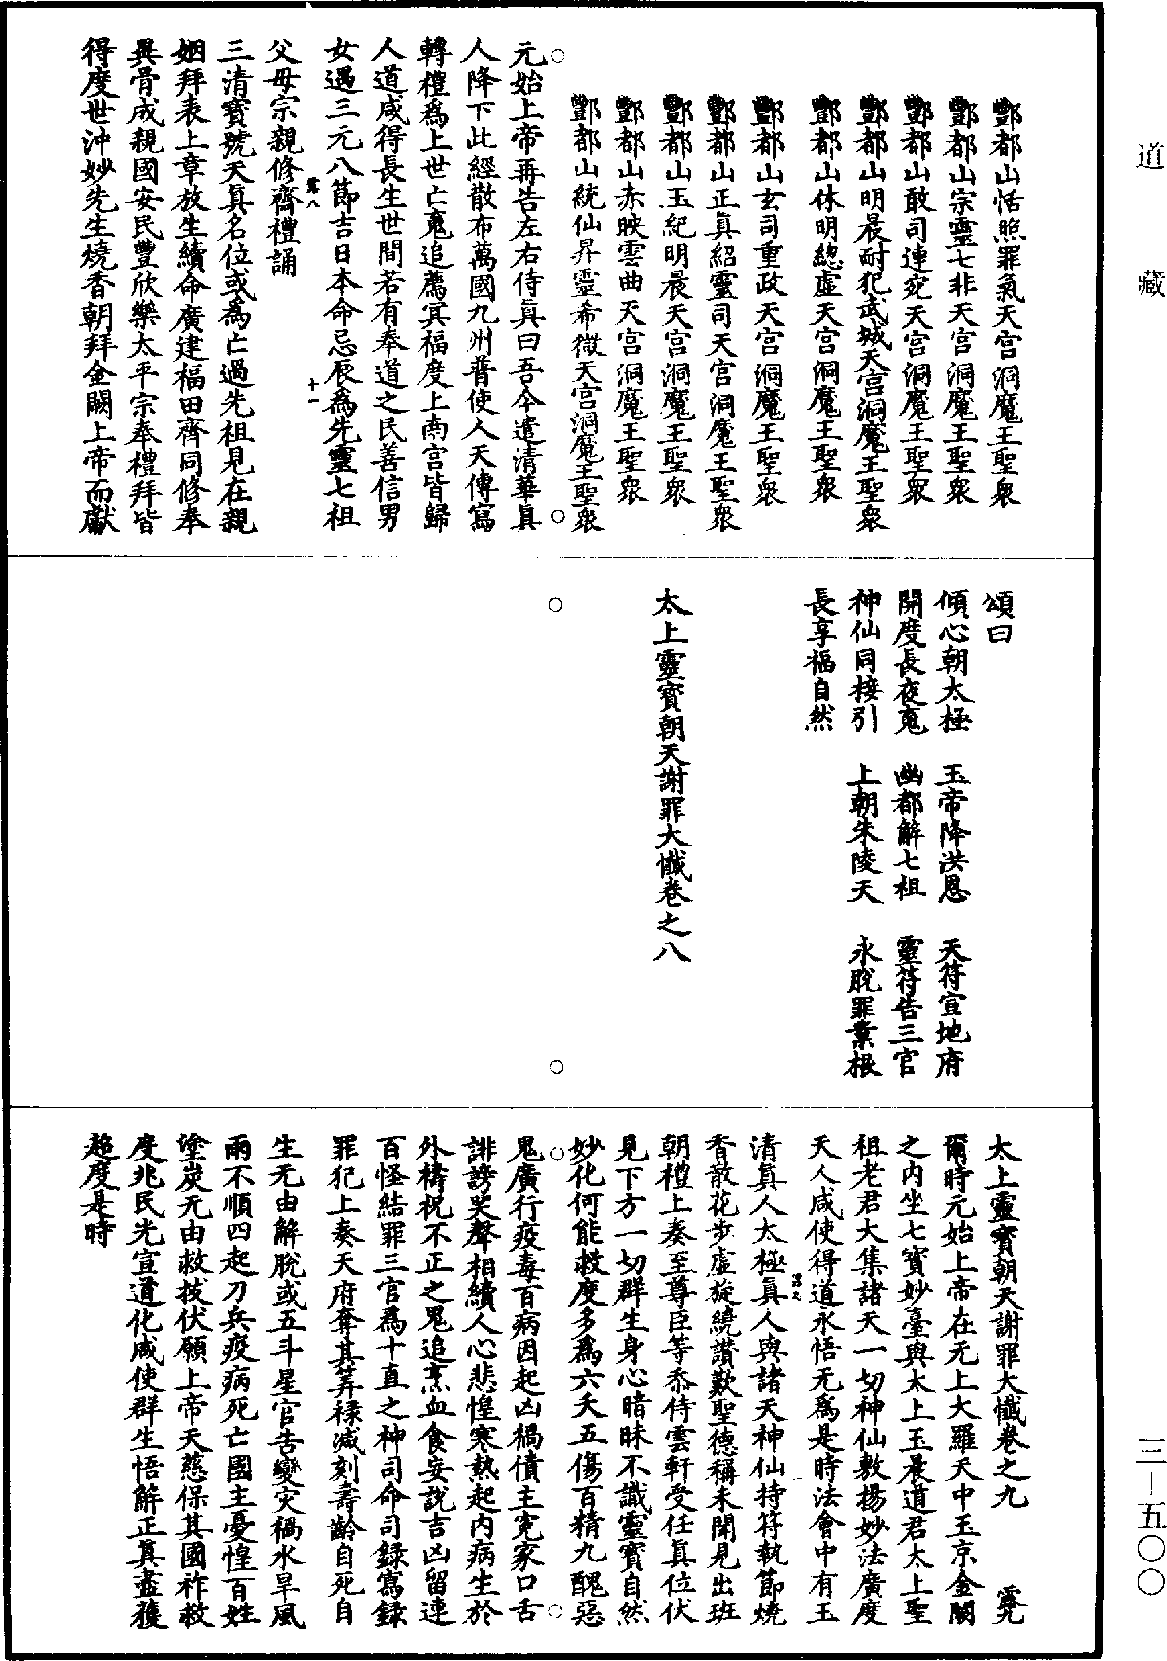 道藏
三—五〇〇
酆都山恬照罪氣天宮洞魔王聖衆
酆都山宗靈七非天宮洞魔王聖衆
酆都山敢司連宛天宮洞魔王聖衆
酆都山明晨耐犯武城天宮洞魔王聖衆
酆都山休明總虛天宮洞魔王聖衆
酆都山玄司重政天宮洞魔王聖衆
酆都山正眞紹靈司天宮洞魔王聖衆
酆都山玉紀明晨天宮洞魔王聖衆
酆都山赤映雲曲天宮洞魔王聖衆
酆都山統仙昇靈希微天宮洞魔王聖衆
元始上帝再告左右侍眞曰吾今遣清華眞
人降下此經散布萬國九州普使人天傳寫
轉禮爲上世亡䰟追薦冥福度上南宮皆歸
人道咸得長生世間若有奉道之民善信男
女遇三元八節吉日本命忌辰爲先靈七祖
十一
父母宗親修齋禮誦
三清寶號天眞名位或爲亡過先祖見在親
姻拜表上章放生續命廣建福田齊同修奉
異骨成親國安民豐欣樂太平宗奉禮拜皆
得度世沖妙先生燒香朝拜金闕上帝而獻
頌曰
傾心朝太極　玉帝降洪恩　天符宣地府
開度長夜䰟　幽都解七祖　靈符告三官
神仙同接引　上朝朱陵天　永脫罪業根
長享福自然
太上靈寶朝天謝罪大懺卷之八
太上靈寶朝天謝罪大懺卷之九
爾時元始上帝在无上大羅天中玉京金闕
之内坐七寶妙臺與太上玉晨道君太上聖
祖老君大集諸天一切神仙敷揚妙法廣度
天人咸使得道永悟无爲是時法會中有玉
清眞人太極眞人與諸天神仙持符執節燒
香散花步虛旋繞讚歎聖德稱未聞見出班
朝禮上奏至尊臣等忝侍雲軒受任眞位伏
見下方一切群生身心暗昧不識靈寶自然
妙化何能救度多爲六天五傷百精九醜惡
鬼廣行疫毒百病因起凶禍債主寃家口舌
誹謗哭聲相續人心悲惶寒熱起内病生於
外禱祝不正之鬼追烹血食妄說吉凶留連
百怪結罪三官爲十直之神司命司錄寫錄
罪犯上奏天府奪其筭祿減刻壽齡自死自
生无由解脫或五斗星官告變灾禍水旱風
雨不順四起刀兵疫病死亡國主憂惶百姓
塗炭无由救拔伏願上帝天慈保其國祚救
度兆民先宣道化咸使群生悟解正眞盡獲
超度是時